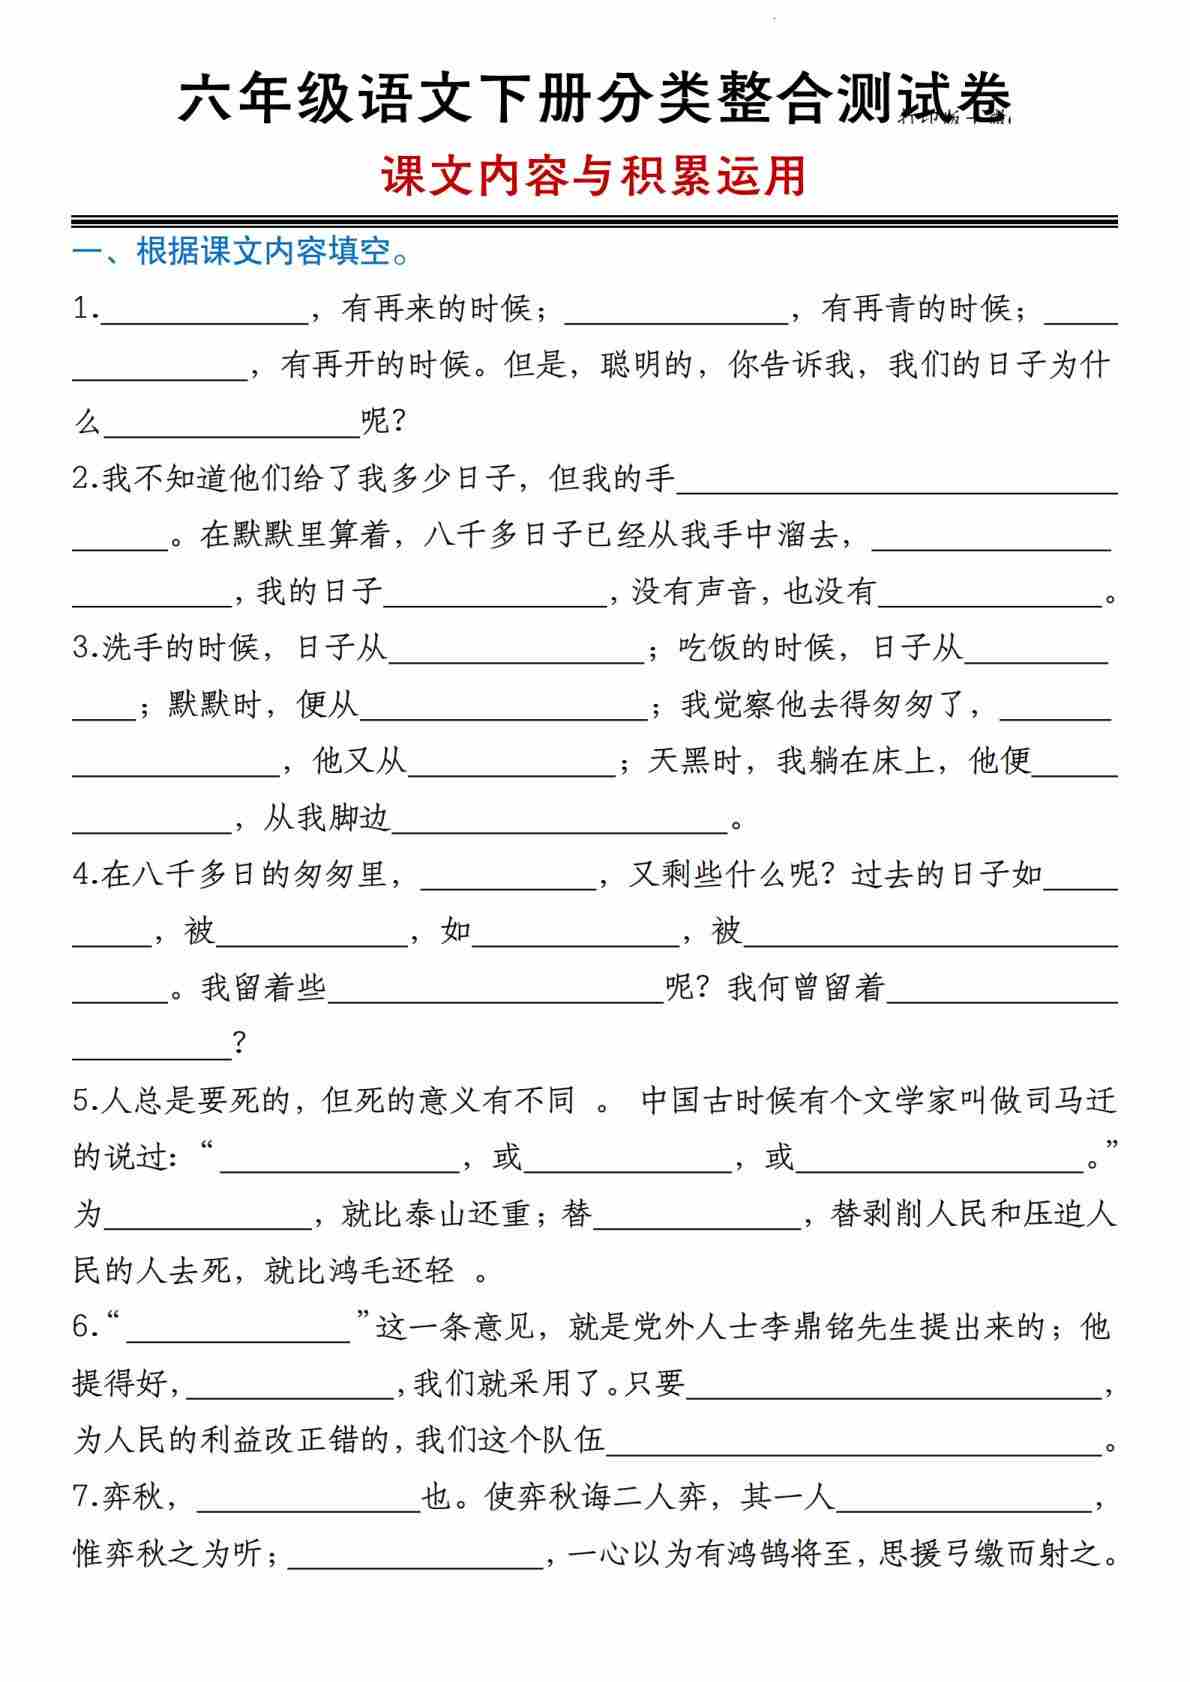 六年级语文下册分类整合测试卷
课文内容与积累运用
一、根据课文内容填空。
1.____________，有再来的时候；____________，有再青的时候；____
__________，有再开的时候。但是，聪明的，你告诉我，我们的日子为什
么______________呢？
2.我不知道他们给了我多少日子，但我的手________________________
______。在默默里算着，八千多日子已经从我手中溜去，______________
__________，我的日子______________，没有声音，也没有______________。
3.洗手的时候，日子从________________；吃饭的时候，日子从________
____；默默时，便从________________；我觉察他去得匆匆了，______
____________，他又从____________；天黑时，我躺在床上，他便_____
__________，从我脚边____________________。
4.在八千多日的匆匆里，__________，又剩些什么呢？过去的日子如____
_____，被____________，如____________，被______________________
______。我留着些____________________呢？我何曾留着______________
__________？
5.人总是要死的，但死的意义有不同 。 中国古时候有个文学家叫做司马迁
的说过：“______________，或____________，或________________。”
为____________，就比泰山还重；替____________，替剥削人民和压迫人
民的人去死，就比鸿毛还轻 。
6.“______________”这一条意见，就是党外人士李鼎铭先生提出来的；他
提得好，____________，我们就采用了。只要________________________，
为人民的利益改正错的，我们这个队伍______________________________。
7.弈秋，______________也。使弈秋诲二人弈，其一人______________，
惟弈秋之为听；________________，一心以为有鸿鹄将至，思援弓缴而射之。